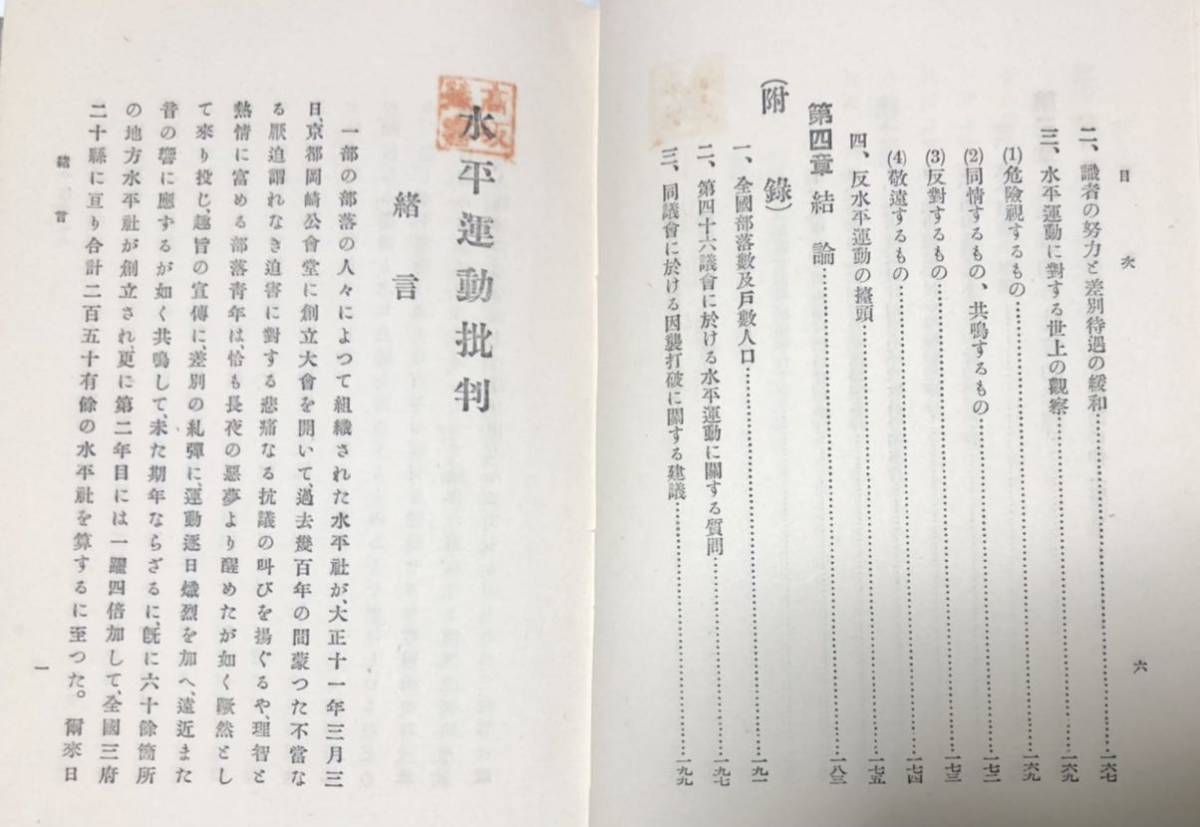 目次
二、識者の努力と差別待遇の緩和……一六七
三、水平運動に對する世上の觀察……一六九
(1)危險視するもの……一六九
(2)同情するもの、共鳴するもの……一七二
(3)反對するもの……一七三
(4)敬遠するもの……一七四
四、反水平運動の擡頭……一七五
第四章 結論……一八三
(附錄)
一、全國部落數及戸數人口……一九一
二、第四十六議會に於ける水平運動に關する質問……一九七
三、同議會に於ける因襲打破に關する建議……一九九
六
水平運動批判
緒言
一部の部落の人々によつて組織された水平社が、大正十一年三月三
日、京都岡崎公會堂に創立大會を開いて、過去幾百年の間蒙つた不當な
る厭迫謂れなき迫害に對する悲痛なる抗議の叫びを揚ぐるや、理智と
熱情に富める部落青年は、恰も長夜の惡夢より醒めたが如く蹶然とし
て來り投じ、趣旨の宣傳に差別の糺彈に、運動逐日熾烈を加へ、遠近また
音の響に應ずるが如く共鳴して、未た期年ならざるに、既に六十餘箇所
の地方水平社が創立され、更に第二年目には一躍四倍加して、全國三府
二十縣に亘り合計二百五十有餘の水平社を算するに至つた。爾來日
緒言
一